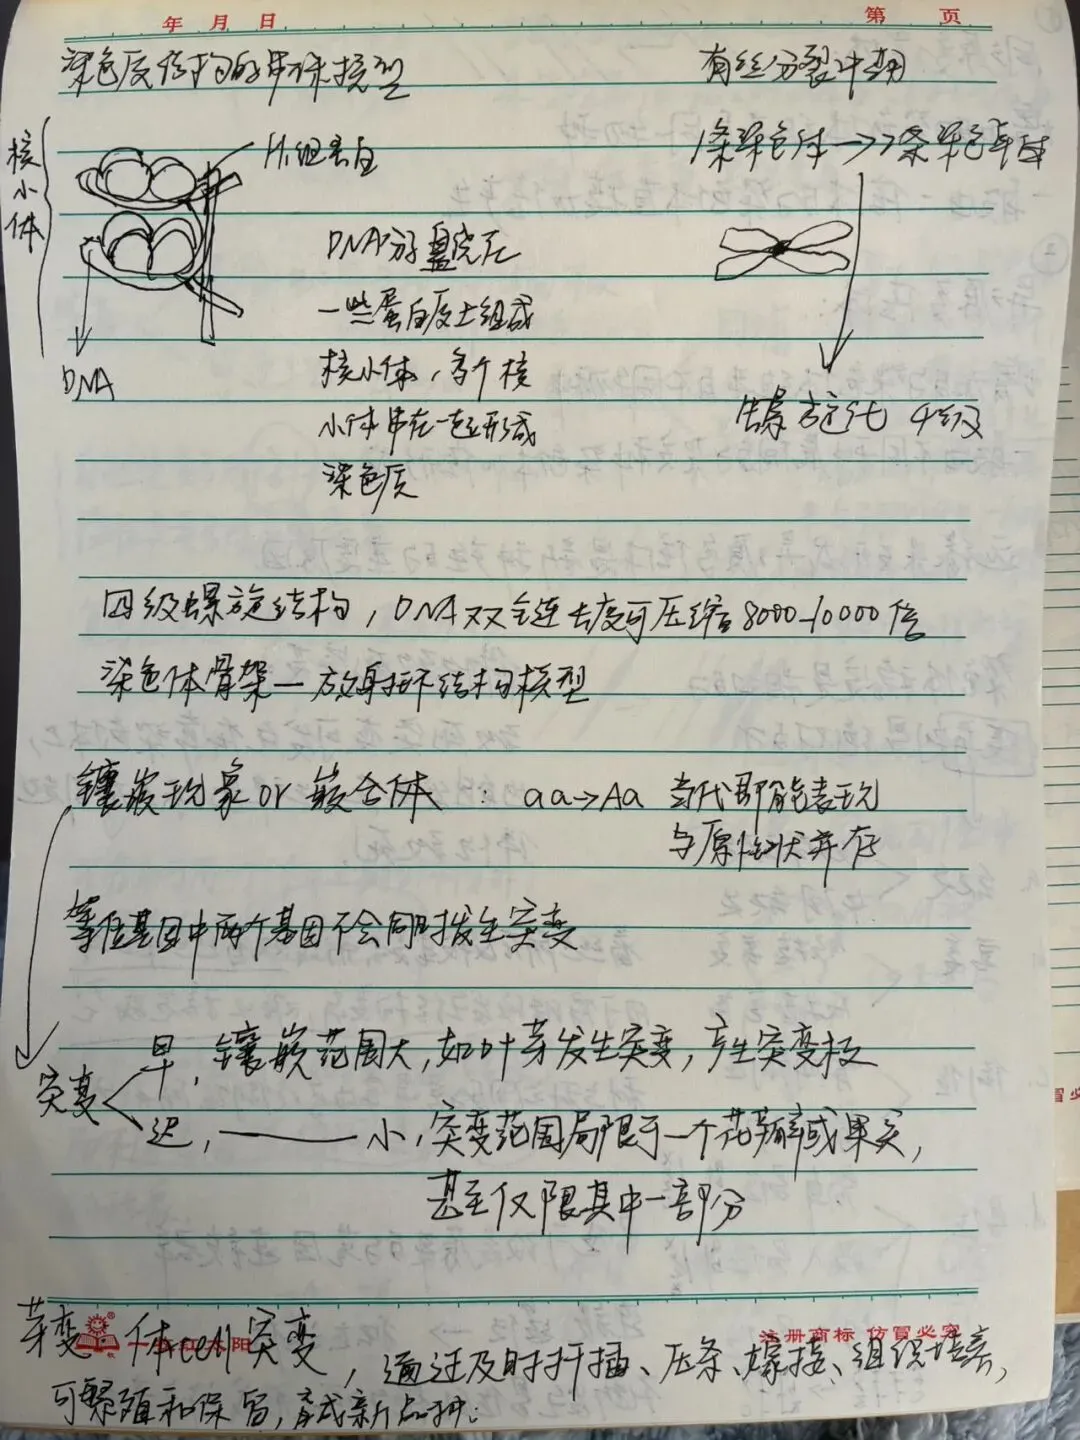 年 月 日
第 页
染色质结构的串珠模型
有丝分裂中期
核小体
H₁组蛋白
1条染色体→2条染色单体
DNA分子盘绕在
一些蛋白质上组成
DNA
核小体，多个核
小体串在一起形成
染色质
螺旋化 4级
四级螺旋结构，DNA双链长度可压缩8000-10000倍
染色体骨架—放射环结构模型
镶嵌现象or嵌合体：aa→Aa 当代即能表现
与原性状并存
等位基因中两个基因不会同时发生突变
突变
早，镶嵌范围大，如叶芽发生突变，产生突变枝
迟，——小，突变范围局限于一个花瓣或果实，
甚至仅限其中一部分
太阳
注册商标 仿冒必究
芽变 体cell突变，通过及时扦插、压条、嫁接、组织培养，
可繁殖和保留，育成新品种.